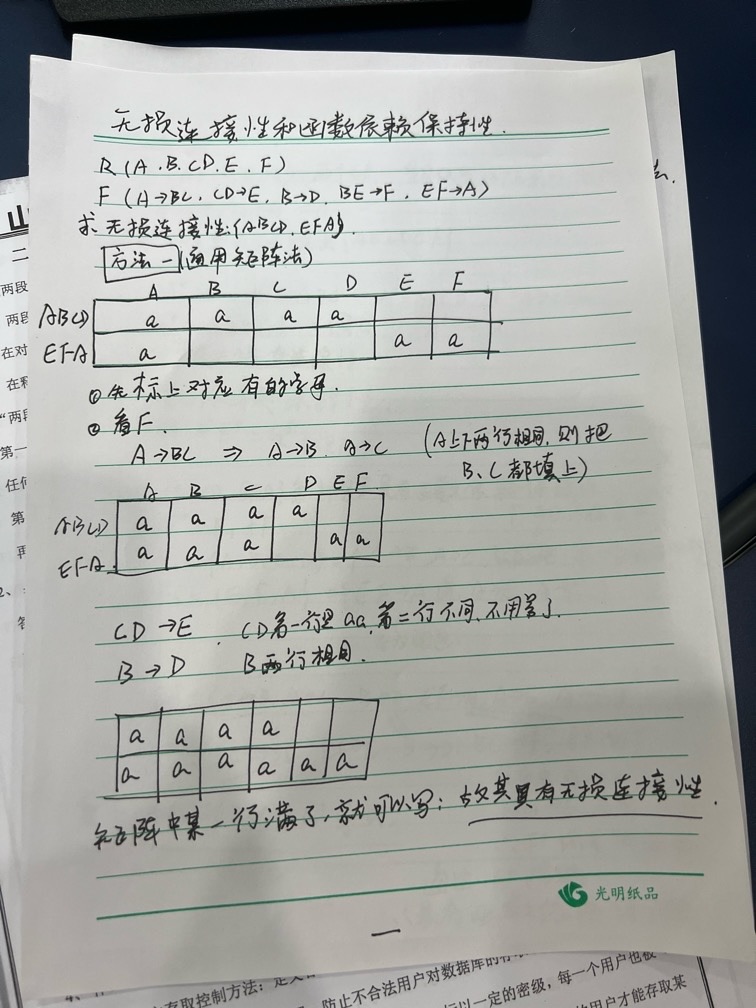 无损连接性和函数依赖保持性.
R(A.B.CD.E.F)
F(A→BC,CD→E,B→D,BE→F,EF→A)
求无损连接性:{ABCD,EFA}.
方法一(通用矩阵法)
A B C D E F
ABCD a a a a
EFA a a a
①先标上对应有的字母.
②看F.
A→BC ⇒ A→B. A→C (A上下两行相同,则把
B、C都填上)
A B C D E F
ABCD a a a a
EFA a a a a a
CD→E. CD第一行是aa,第二行不同,不用写了.
B→D B两行相同.
a a a a
a a a a a a
矩阵中某一行满了,就可以写:故其具有无损连接性.
光明纸品
一
山
二
两段
两段
在对
在
"两段
第一
任何
第
再
存取控制方法:定义
防止不合法用户对数据库的存
以一定的密级,每一个用户也被
的用户才能存取某